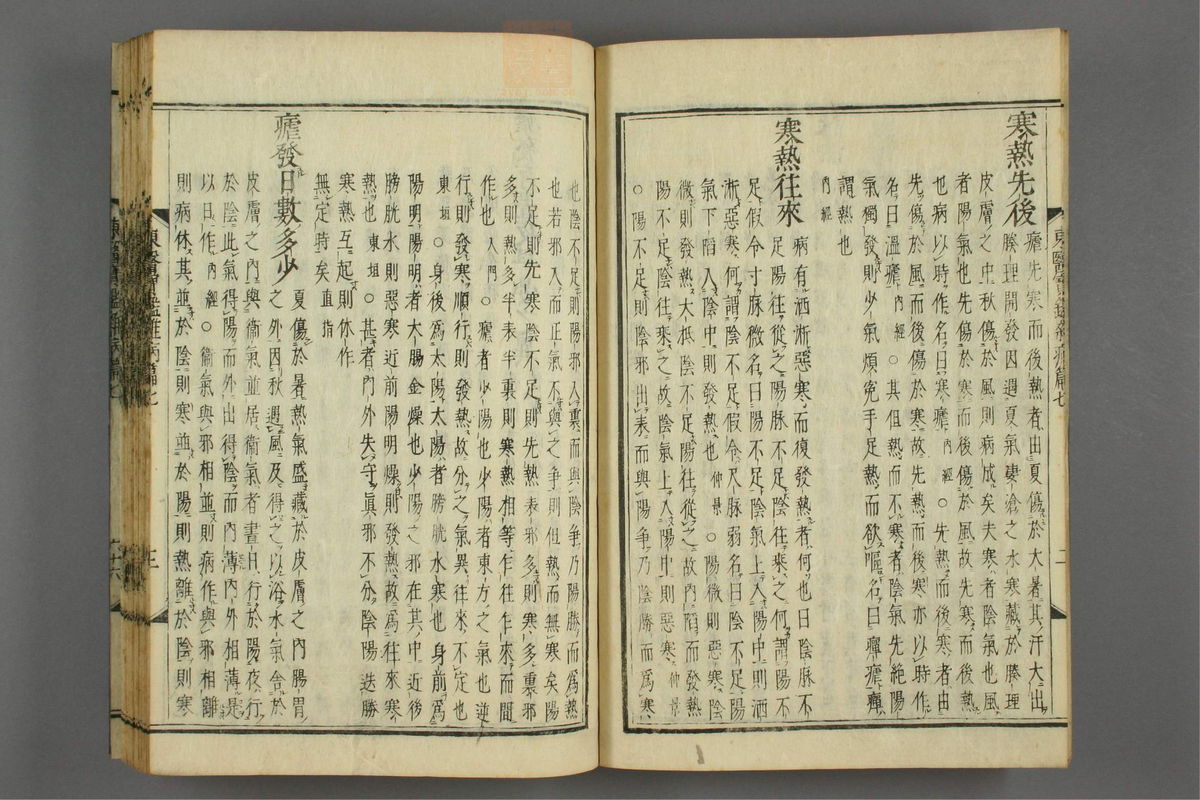 寒熱先後
瘧先寒而後熱者由夏傷於大暑其汗大出
腠理開發因遇夏氣凄滄之水寒藏於腠理
皮膚之中秋傷於風則病成矣夫寒者陰氣也風
者陽氣也先傷於寒而後傷於風故先寒而後熱
也病以時作名曰寒瘧內經○先熱而後寒者由
先傷於風而後傷於寒故先熱而後寒亦以時作
名曰溫瘧內經○其但熱而不寒者陰氣先絶陽
氣獨發則少氣煩寃手足熱而欲嘔名曰癉瘧癉
謂熱也
內經
寒熱往來
病有洒淅惡寒而復發熱者何也曰陰脉不
足陽往從之陽脉不足陰往乘之何謂陽不
足假令寸脉微名曰陽不足陰氣上入陽中則洒
淅惡寒何謂陰不足假令尺脉弱名曰陰不足陽
氣下陷入陰中則發熱也仲景○陽微則惡寒陰
微則發熱大抵陰不足陽往從之故內陷而發熱
陽不足陰往乘之故陰氣上入陽中則惡寒仲景
○陽不足則陰邪出表而與陽爭乃陰勝而爲寒
也陰不足則陽邪入裏而與陰爭乃陽勝而爲熱
也若邪入而正氣不與之爭則但熱而無寒矣陽
不足則先寒陰不足則先熱表邪多則寒多裏邪
多則熱多半表半裏則寒熱相等乍往乍來而間
作也入門○瘧者少陽也少陽者東方之氣也逆
行則發寒順行則發熱故分之氣異往來不定也
東垣○身後爲太陽太陽者膀胱水寒也身前爲
陽明陽明者大腸金燥也少陽之邪在其中近後
膀胱水則惡寒近前陽明燥則發熱故爲往來寒
熱也東垣○甚者內外失守眞邪不分陰陽迭勝
寒熱互起則休作
無定時矣直指
瘧發日數多少
夏傷於暑熱氣盛藏於皮膚之內腸胃
之外因秋遇風及得之以浴水氣舍於
皮膚之內與衛氣並居衛氣者晝日行於陽夜行
於陰此氣得陽而外出得陰而內薄內外相薄是
以日作內經○衛氣與邪相並則病作與邪相離
則病休其並於陰則寒並於陽則熱離於陰則寒